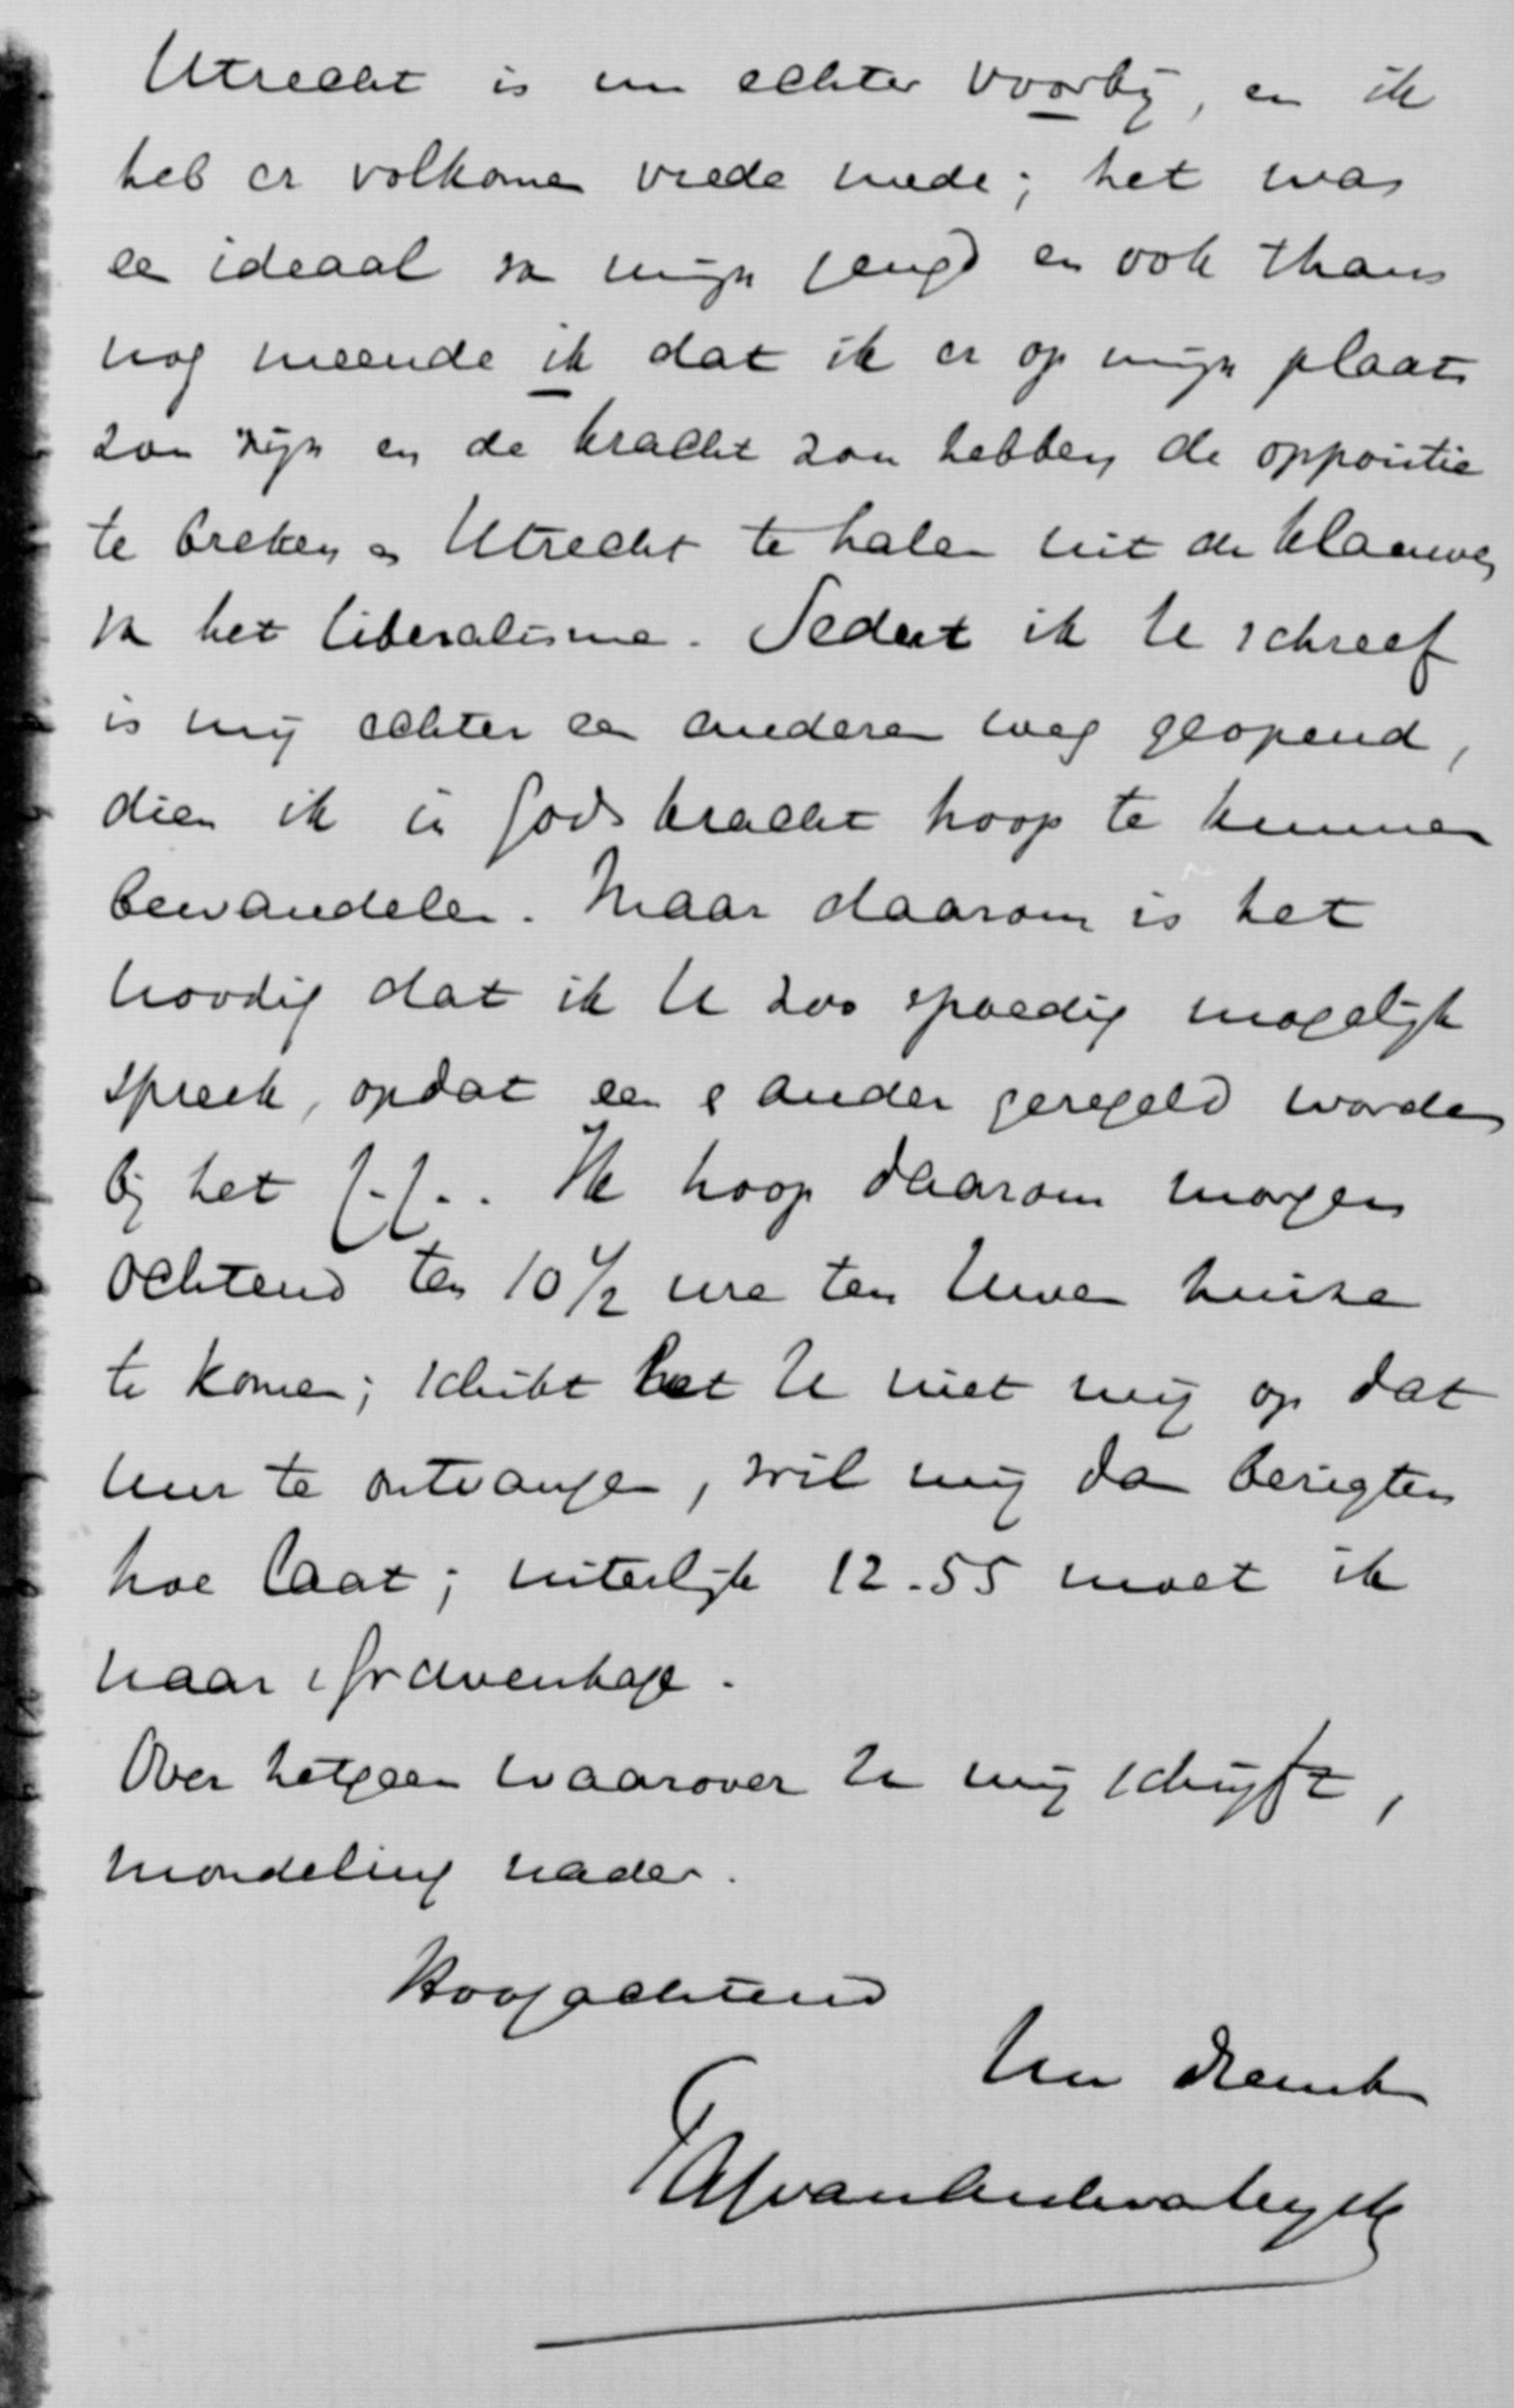 Utrecht is nu echter voorbij, en ik
heb er volkomen vrede mede; het was
een ideaal van mijn jeugd en ook thans
nog meende ik dat ik er op mijn plaats
zou zijn en de kracht zou hebben de oppositie
te breken en Utrecht te halen uit de klaauwen
van het liberalisme. Sedert ik U schreef
is mij echter een anderen weg geopend,
dien ik in Gods kracht hoop te kunnen
bewandelen. Maar daarom is het
noodig dat ik U zoo spoedig mogelijk
spreek, opdat een & ander geregeld worde
bij het C.C.. Ik hoop daarom morgen
ochtend ten 10 1/2 ure ten Uwen huize
te komen; schikt het U niet mij op dat
uur te ontvangen, wil mij dan berigten
hoe laat; uiterlijk 12.55 moet ik
naar 's Gravenhage.
Over hetgeen waarover U mij schrijft,
mondeling nader.
Hoogachtend
Uw